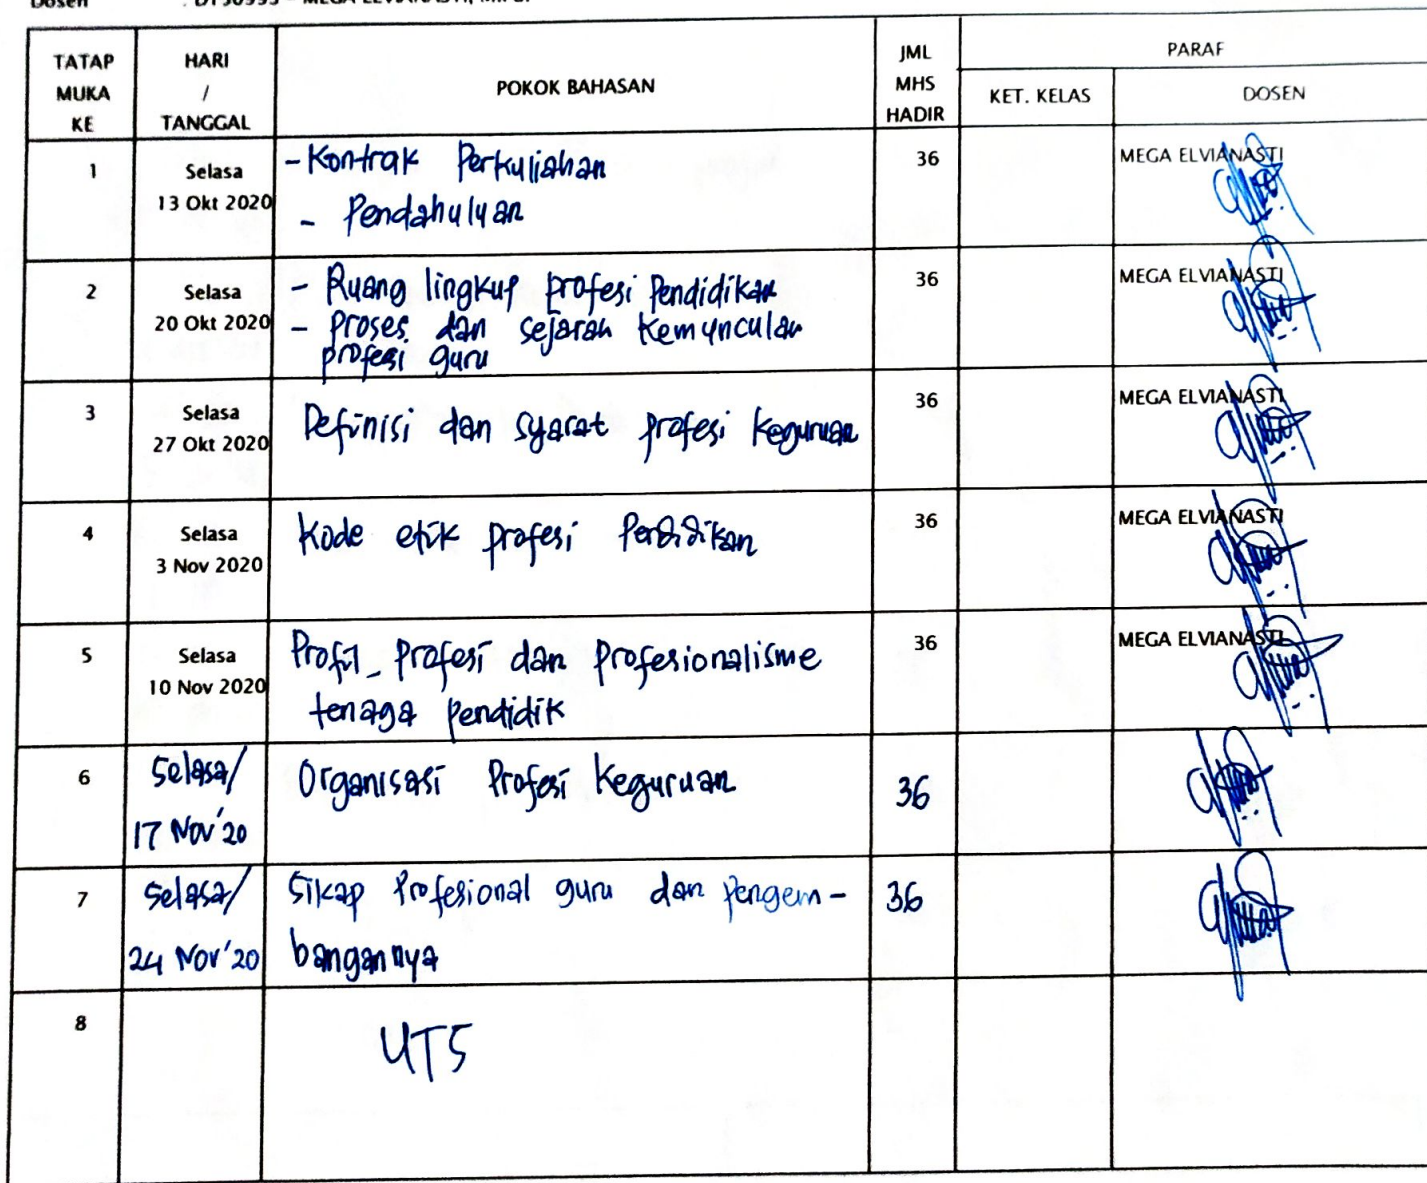 Dosen
TATAP MUKA KE
HARI / TANGGAL
POKOK BAHASAN
JML MHS HADIR
PARAF
KET. KELAS
DOSEN
1
Selasa
13 Okt 2020
- Kontrak Perkuliahan
- Pendahuluan
36
MEGA ELVIANASTI
2
Selasa
20 Okt 2020
- Ruang lingkup profesi Pendidikan
- Proses dan sejarah Kemunculan
profesi guru
36
MEGA ELVIANASTI
3
Selasa
27 Okt 2020
Definisi dan syarat profesi Keguruan
36
MEGA ELVIANASTI
4
Selasa
3 Nov 2020
Kode etik profesi Pendidikan
36
MEGA ELVIANASTI
5
Selasa
10 Nov 2020
Profil, Profesi dan Profesionalisme
tenaga pendidik
36
MEGA ELVIANASTI
6
Selasa/
17 Nov'20
Organisasi Profesi Keguruan
36
7
Selasa/
24 Nov'20
Sikap Profesional guru dan Pengem-
bangannya
36
8
UTS